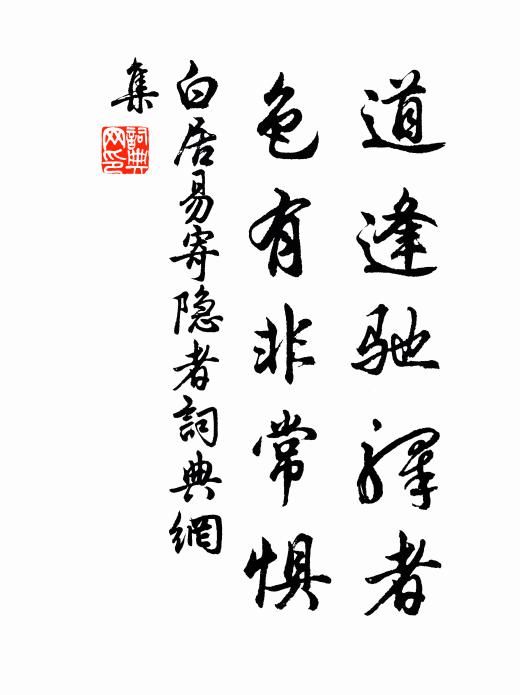 道逢驰驿者
色有非常惧
白居易寄隐者詞典網
集
詞典
网印